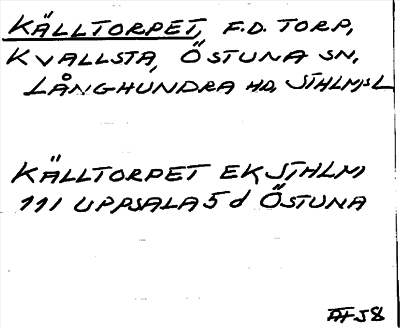 KÄLLTORPET, F.D. TORP,
KVALLSTA, ÖSTUNA SN,
LÅNGHUNDRA HD, STHLMSL
KÄLLTORPET EK STHLM
111 UPPSALA 5 d ÖSTUNA